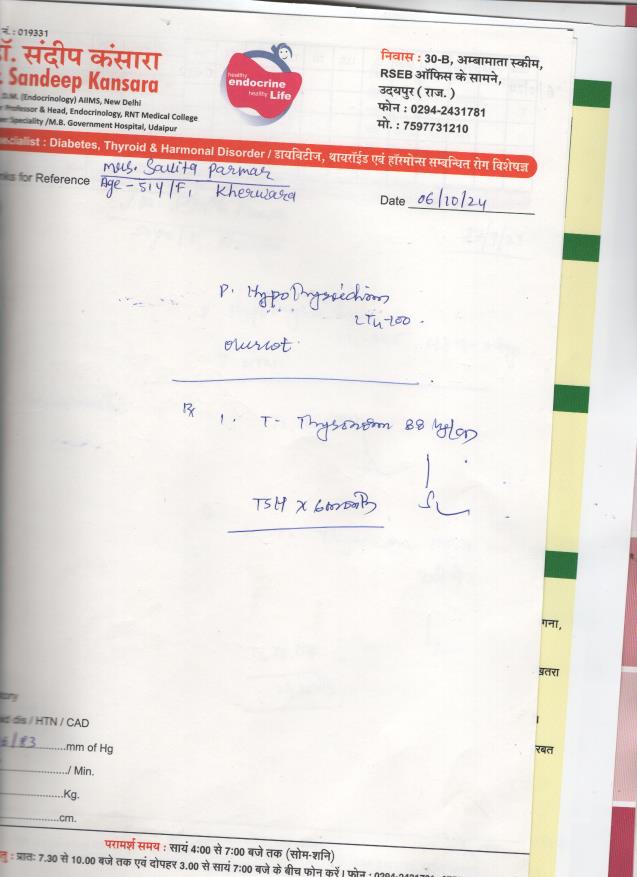 नं.: 019331
डॉ. संदीप कंसारा
Sandeep Kansara
D.M. (Endocrinology) AIIMS, New Delhi
Professor & Head, Endocrinology, RNT Medical College
Speciality /M.B. Government Hospital, Udaipur
healthy
endocrine
healthy Life
निवास : 30-B, अम्बामाता स्कीम,
RSEB ऑफिस के सामने,
उदयपुर ( राज. )
फोन : 0294-2431781
मो. : 7597731210
Specialist : Diabetes, Thyroid & Harmonal Disorder / डायबिटीज, थायरॉईड एवं हॉरमोन्स सम्बन्धित रोग विशेषज्ञ
Mrs. Savita Parmar
Thanks for Reference Age - 51Y/F, Kherwara
Date 06/10/24
P. Hypothyroidism
Rx 1. T- Thyronorm 88
TSH x 6 months
गना,
खतरा
रबत
dis / HTN / CAD
/83 mm of Hg
/ Min.
Kg.
cm.
परामर्श समय : सायं 4:00 से 7:00 बजे तक (सोम-शनि)
प्रातः 7.30 से 10.00 बजे तक एवं दोपहर 3.00 से सायं 7:00 बजे के बीच फोन करें। फोन :